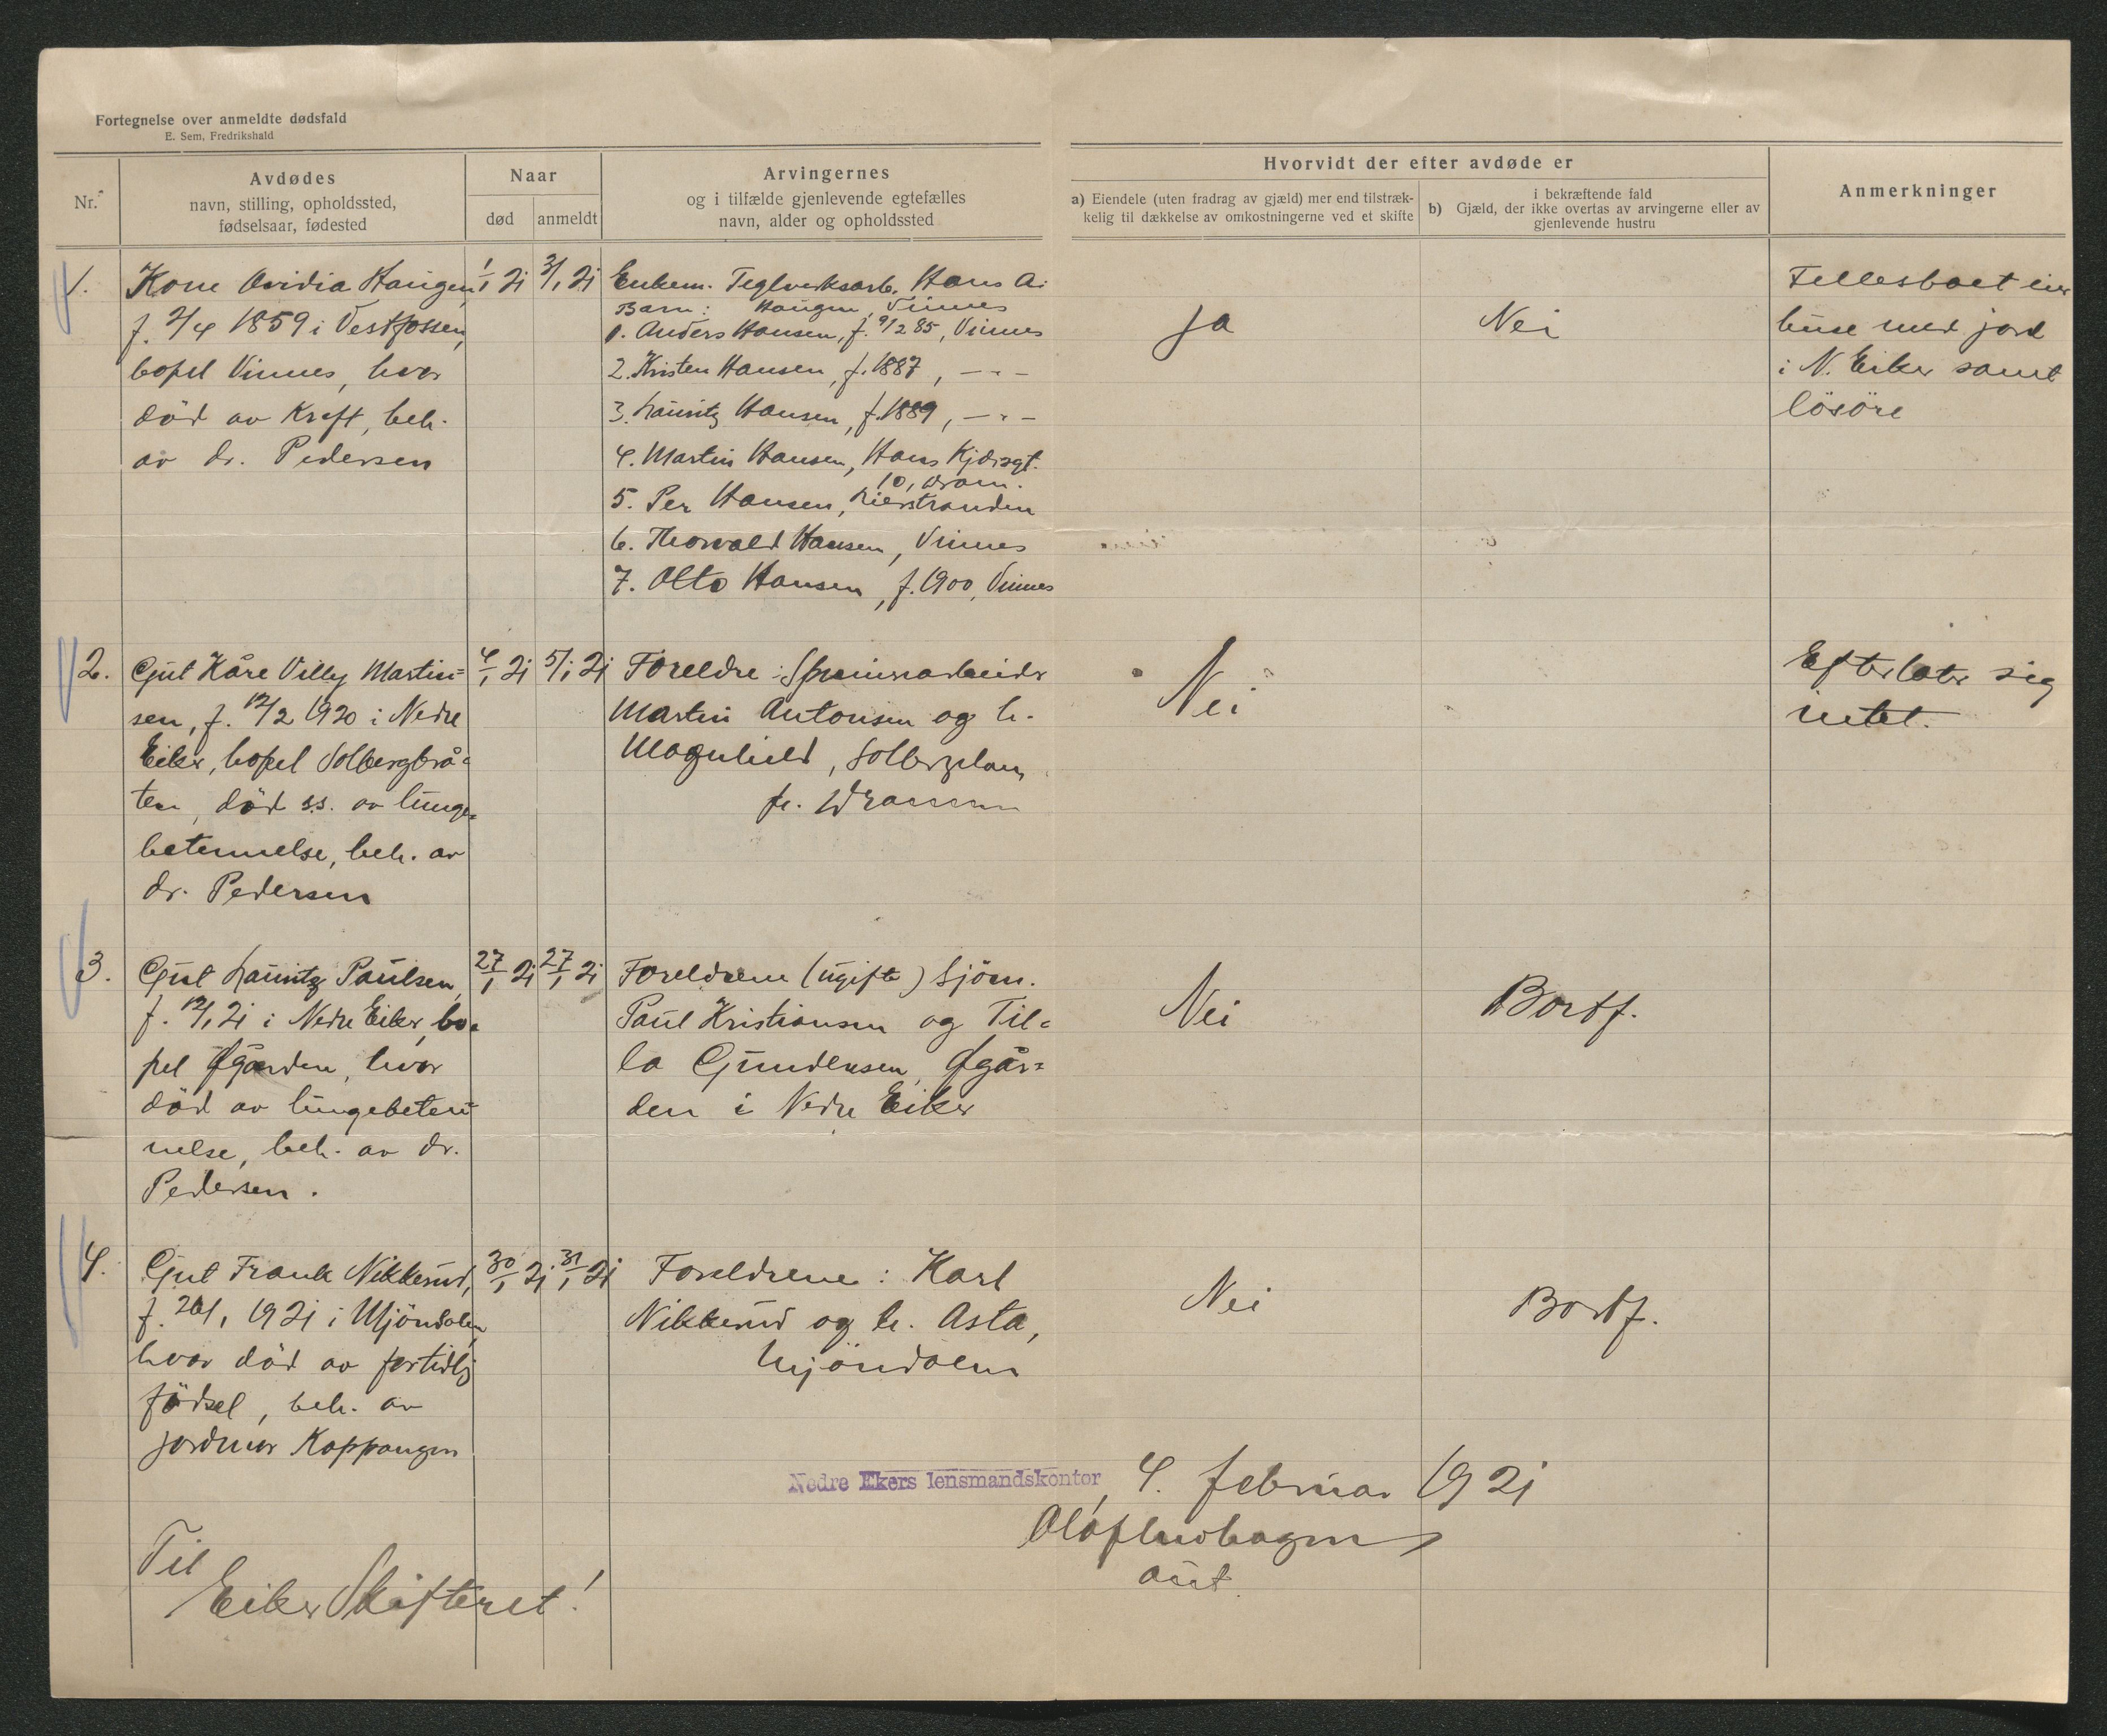 Fortegnelse over anmeldte dødsfald
E. Sem, Fredrikshald
Nr.
Avdødes
navn, stilling, opholdssted,
fødselsaar, fødested
Naar
død
anmeldt
Arvingernes
og i tilfælde gjenlevende egtefælles
navn, alder og opholdssted
Hvorvidt der efter avdøde er
a) Eiendele (uten fradrag av gjæld) mer end tilstræk-
kelig til dækkelse av omkostningerne ved et skifte
i bekræftende fald
b) Gjæld, der ikke overtas av arvingerne eller av
gjenlevende hustru
Anmerkninger
1.
Kone Ovidia Haugen,
f. 2/4 1859 i Vestfossen,
bopel Vinnes, hvor
död av Kreft, beh.
av dr. Pedersen
1/1 21
3/1 21
Enkem. Teglverksarb. Hans A.
Haugen, Vinnes
Barn:
1. Anders Hansen, f. 9/2 85, Vinnes
2. Kristen Hansen, f. 1887, — " —
3. Lauritz Hansen, f. 1889, — " —
4. Martin Hansen, Hans Kjærsgt.
10, Dram.
5. Per Hansen, Lierstranden
6. Thorvald Hansen, Vinnes
7. Otto Hansen, f. 1900, Vinnes
Ja
Nei
Fellesboet eier
huse med jord
i N. Eiker samt
lösöre
2.
Gut Kåre Villy Martin=
sen, f. 12/2 1920 i Nedre
Eiker, bopel Solbergbrå=
ten, död s.s. av lunge=
betennelse, beh. av
dr. Pedersen
4/1 21
5/1 21
Foreldre: Spinneriarbeider
Martin Antonsen og h.
Magnhild, Solbergelven
pr. Drammen
Nei
Efterlater sig
intet.
3.
Gut Lauritz Paulsen,
f. 12/1 21 i Nedre Eiker, bo=
pel Øgården, hvor
död av lungebeten=
nelse, beh. av dr.
Pedersen.
27/1 21
27/1 21
Foreldrene (ugifte) Sjöm.
Paul Kristiansen og Til=
la Gundersen, Øgår=
den i Nedre Eiker
Nei
Bortf.
4.
Gut Frank Nikkerud,
f. 26/1 1921 i Mjöndalen,
hvor död av fortidlig
födsel, beh. av
jordmor Koppangen
30/1 21
31/1 21
Foreldrene: Karl
Nikkerud og h. Asta,
Mjöndalen
Nei
Bortf.
Nedre Ekers lensmandskontor, 4. februar 1921
aut.
Til
Eiker Skifteret!